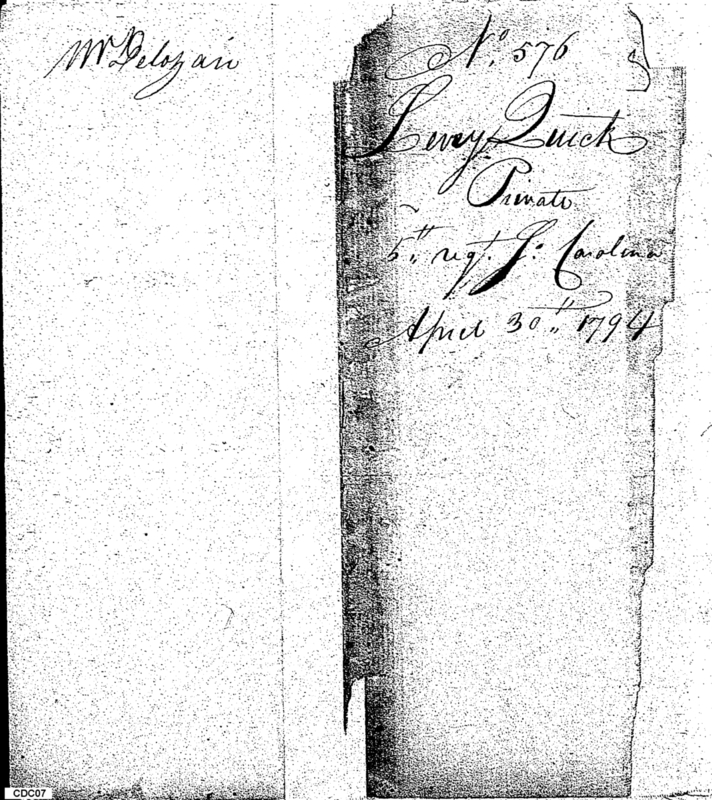 Mr Delozair
No. 576
Levey Quick
Private
5th regt. So: Carolina
April 30th 1794
CDC07